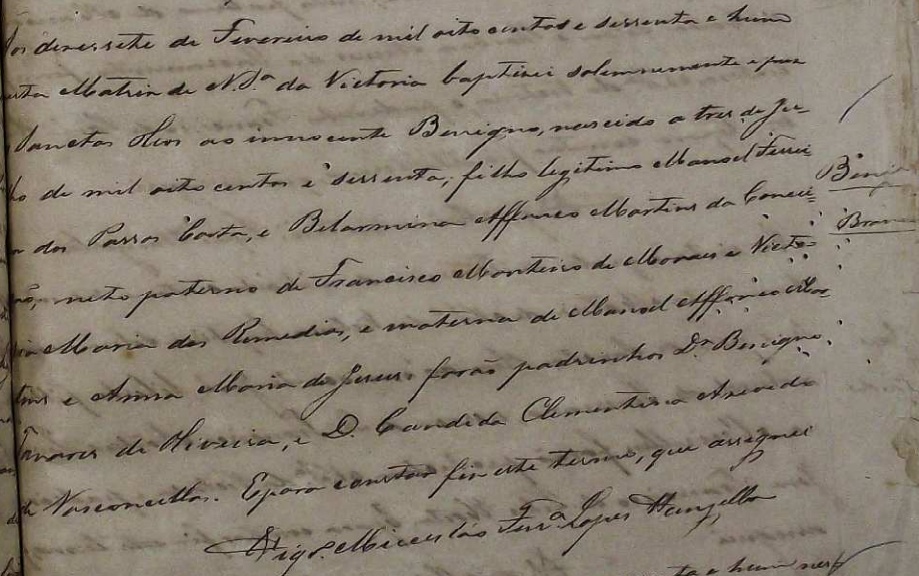 dezessete de Fevereiro de mil oito centos e sessenta e hum
Matriz de N. Sra. da Victoria baptisei solemnemente e puz
Sanctos Oleos ao innocente Benigno, nascido a tres de Ju-
de mil oito centos e sessenta, filho legitimo Manoel Ferrei-
dos Passos Costa, e Belarmina Affonço Martins da Concei-
neto paterno de Francisco Monteiro de Moraes e Victo-
Maria dos Remedios, e materno de Manoel Affonço Mar-
tins e Anna Maria de Jesus. forão padrinhos Dr. Benigno
Tavares de Oliveira, e D. Candida Clementina
de Vasconcellos. E para constar fiz este termo, que assignei
Vigro. Lopes
Beni
Bran
e hum